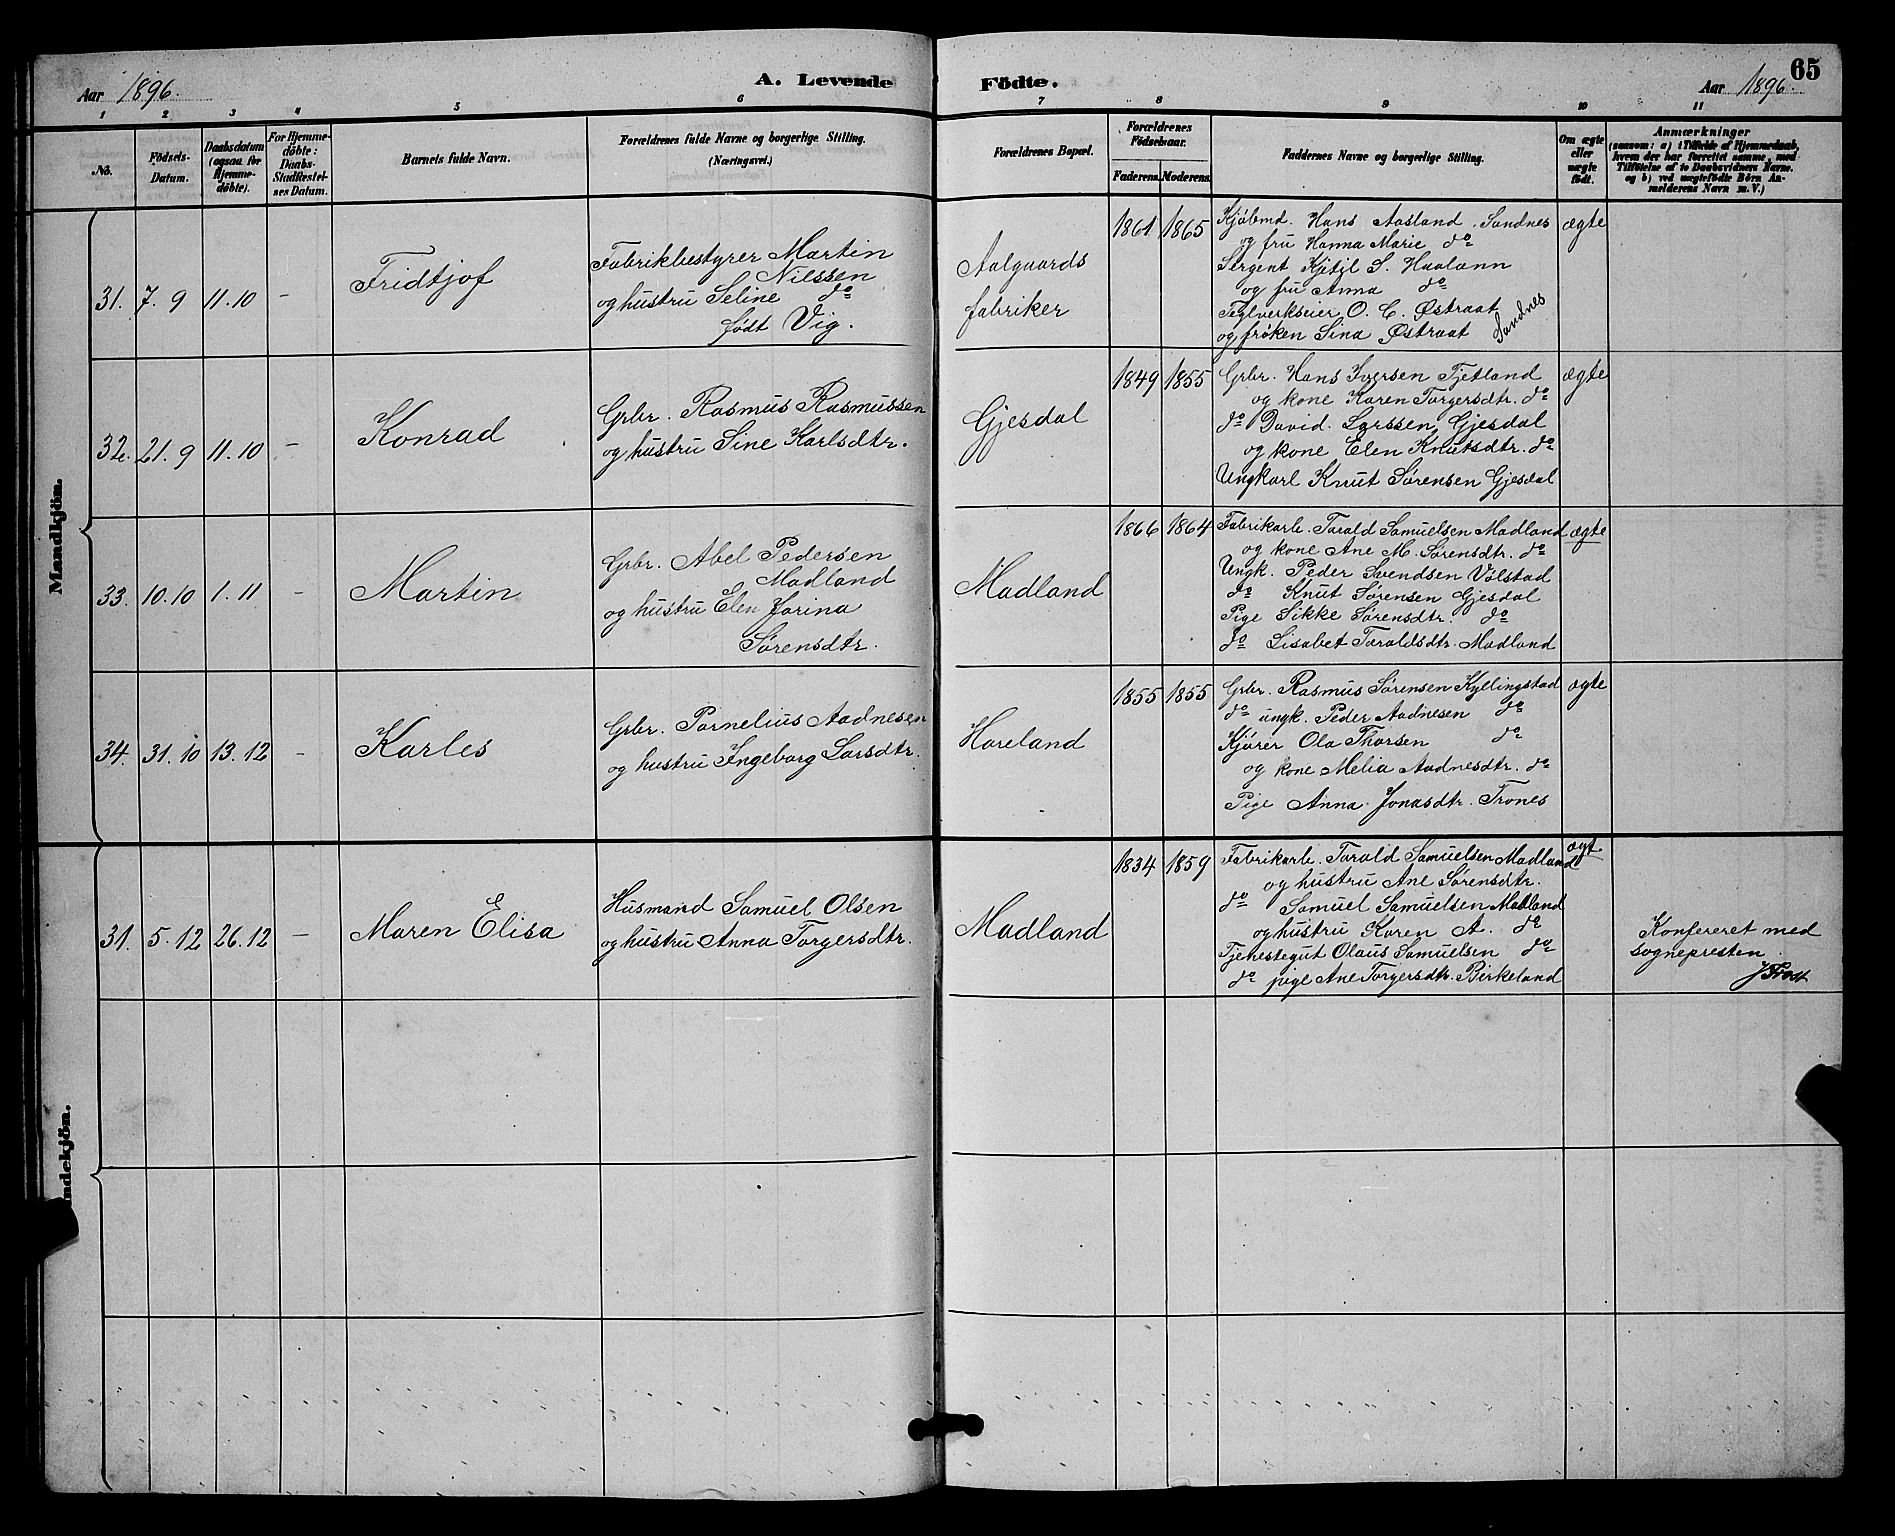 Aar 1896.
A. Levende Födte.
Aar 1896.
65
1 2 3 4 5 6 7 8 9 10 11
No.
Födsels-
Datum.
Daabsdatum
(ogsaa for
Hjemme-
döbte).
For Hjemme-
döbte:
Daabs-
Stadfæstel-
ses Datum.
Barnets fulde Navn.
Forældrenes fulde Navne og borgerlige Stilling.
(Næringsvei.)
Forældrenes Bopæl.
Forældrenes
Födselsaar.
Faderens. Moderens.
Faddernes Navne og borgerlige Stilling.
Om ægte
eller
uægte
födt.
Anmærkninger
(saasom: a) i Tilfælde af Hjemmedaab,
hvem der har forrettet samme, med
Tilföielse af to Daabsvidners Navne.
og b) ved uægtefödte Börn An-
melderens Navn m. V.)
Mandkjön.
31. 7. 9 11. 10 –
Fridtjof
Fabrikbestyrer Martin
Nilssen
og hustru Seline do
født Vig.
Aalgaards
fabriker
1861 1865
Kjøbmd. Hans Aasland. Sandnes
og fru Hanna Marie do
Sergent Kjitjl S. Haaland
og fru Anna do
Teglverkseier O. C. Østraat
og frøken Sina Østraat Sandnes
ægte
32. 21. 9 11. 10 –
Konrad
Grbr. Rasmus Rasmussen
og hustru Sine Karlsdtr.
Gjesdal
1849 1855
Grbr. Hans Iversen Tjetland
og kone Karen Torgersdtr. do
do David Larssen Gjesdal
og kone Elen Knutsdtr. do
Ungkarl Knut Sørensen Gjesdal
ægte
33. 10. 10 1. 11 –
Martin
Grbr. Abel Pedersen
Madland
og hustru Elen Jorina
Sørensdtr.
Madland
1866 1864
Fabrikarb. Tarald Samuelsen Madland
og kone Ane M. Sørensdtr. do
Ungk. Peder Svendsen Vølstad
do Knut Sørensen Gjesdal
Pige Sikke Sørensdtr. do
do Lisabet Taraldsdtr. Madland
ægte
34. 31. 10 13. 12 –
Karles
Grbr. Pornelius Aadnesen
og hustru Ingeborg Larsdtr.
Hareland
1855 1855
Grbr. Rasmus Sørensen Kyllingstad
do ungk. Peder Aadnesen do
Kjører Ola Thorsen do
og kone Melia Aadnesdtr. do
Pige Anna Jonasdtr. Trones
ægte
ndekjön.
31. 5. 12 26. 12 –
Maren Elisa
Husmand Samuel Olsen
og hustru Anna Torgersdtr.
Madland
1834 1859
Fabrikarb. Tarald Samuelsen Madland
og hustru Ane Sørensdtr.
do Samuel Samuelsen Madland
og hustru Karen A. do
Tjenestegut Olaus Samuelsen do
do pige Ane Torgersdtr. Birkeland
Konfereret med
sognepresten